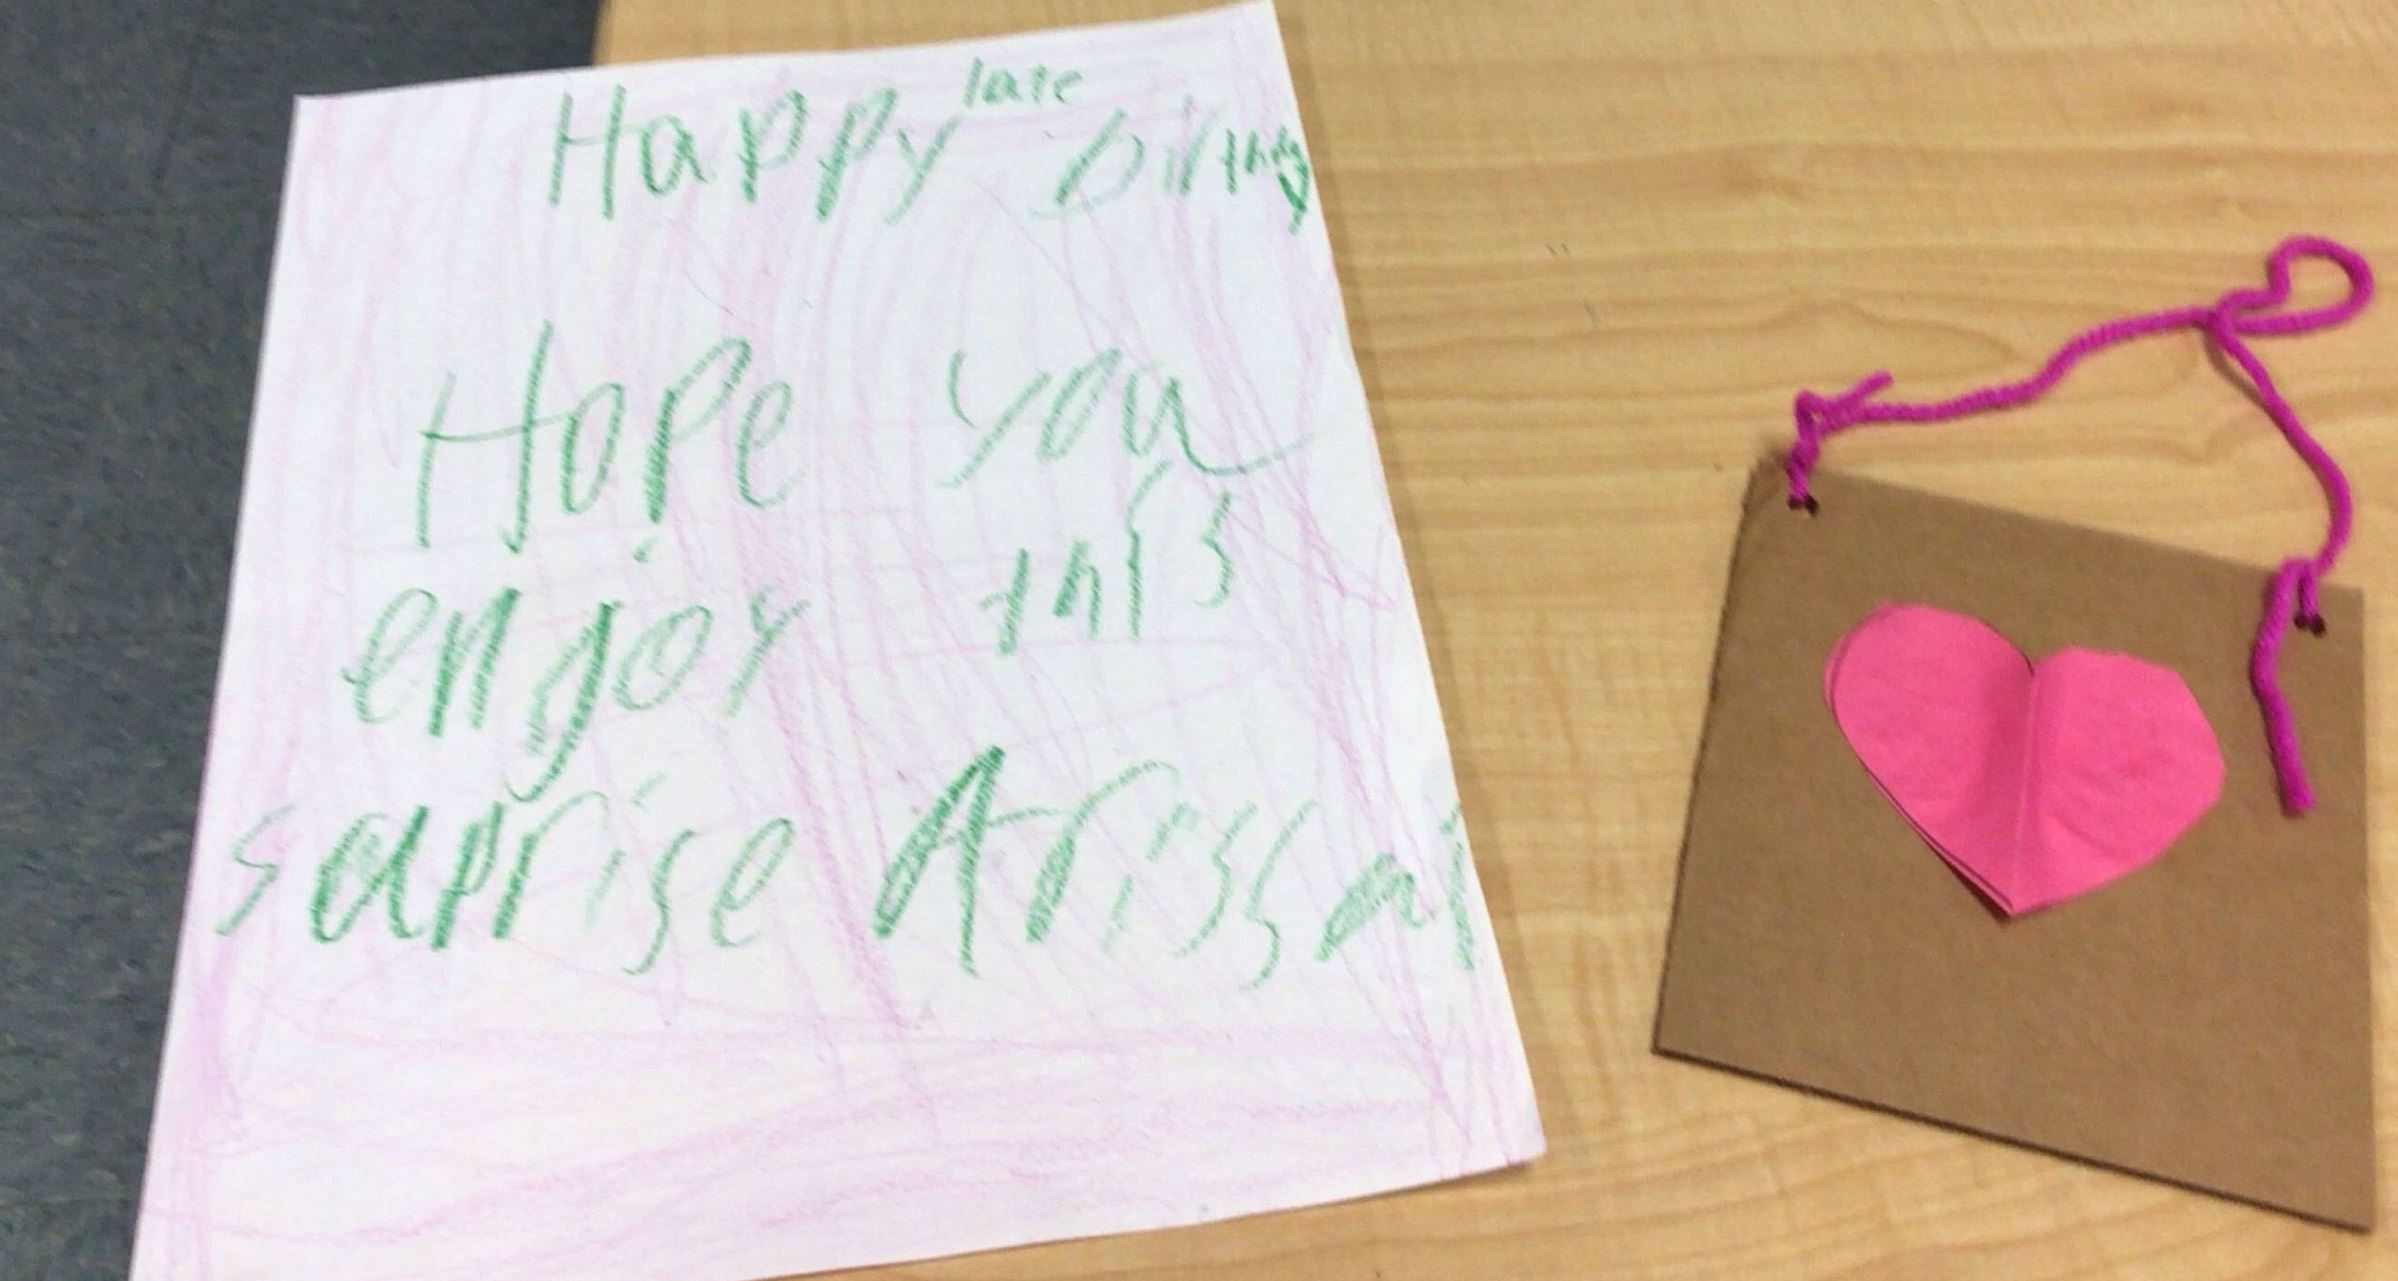 Happy late birthday
Hope you
enjoy this
suprise Arissa!